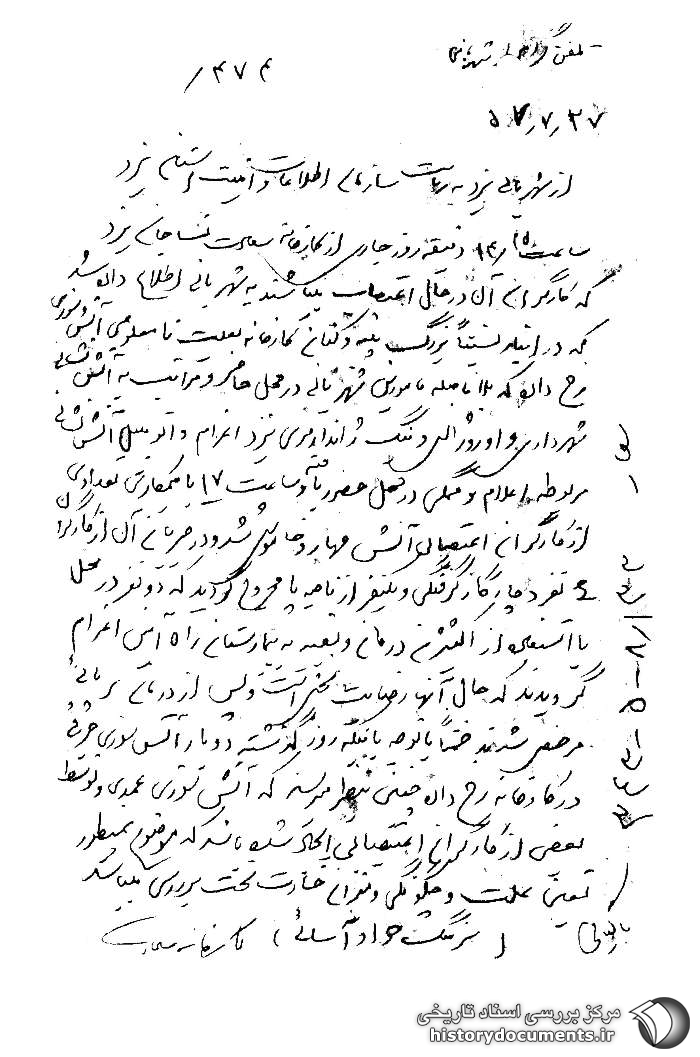 تلفنگرام از شهربانی
۴۷۴/
۵۷٫۷٫۲۷
از شهربانی یزد به ریاست سازمان اطلاعات و امنیت استان یزد
ساعت ۱۴٫۱۵ دقیقه روز جاری از کارخانه سعادت نساجان یزد
که کارگران آن در حال اعتصاب میباشند به شهربانی اطلاع داده شد
که در انبار نسبتاً بزرگ پنبه و کتان کارخانه بعلت نامعلومی آتش سوزی
رخ داده که بلافاصله مامورین شهربانی در محل حاضر و مراتب به آتش نشانی
شهرداری و اورژانس و هنگ ژاندارمری یزد اعزام و اتومبیل آتش نشانی
مربوطه اعلام و همگی در محل حضور یافته و ساعت ۱۷ با همکاری تعدادی
از کارگران اعتصابی آتش مهار و خاموش شد و در جریان آن از کارگران
۴ نفر دچار گاز گرفتگی و یکنفر از ناحیه پا مجروح گردید که دو نفر در محل
با استفاده از اکسیژن درمان و بقیه به بیمارستان راه آهن اعزام
گردیدند که حال آنها رضایت بخش است و پس از درمان سرپائی
مرخص شدند ضمناً با توجه باینکه روز گذشته دو بار آتش سوزی جزئی
در کارخانه رخ داده چنین بنظر میرسد که آتش سوزی عمدی و توسط
بعضی از کارگران اعتصابی ایجاد شده باشد که موضوع بمنظور
تعیین علت و چگونگی و میزان خسارت تحت بررسی میباشد
بایگانی
مرکز بررسی اسناد تاریخی
historydocuments.ir